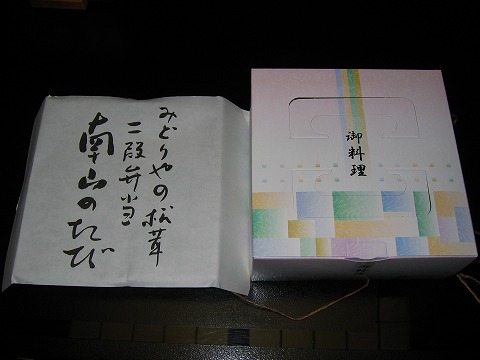 みどりやの松茸
二段弁当
南山のたび
御料理